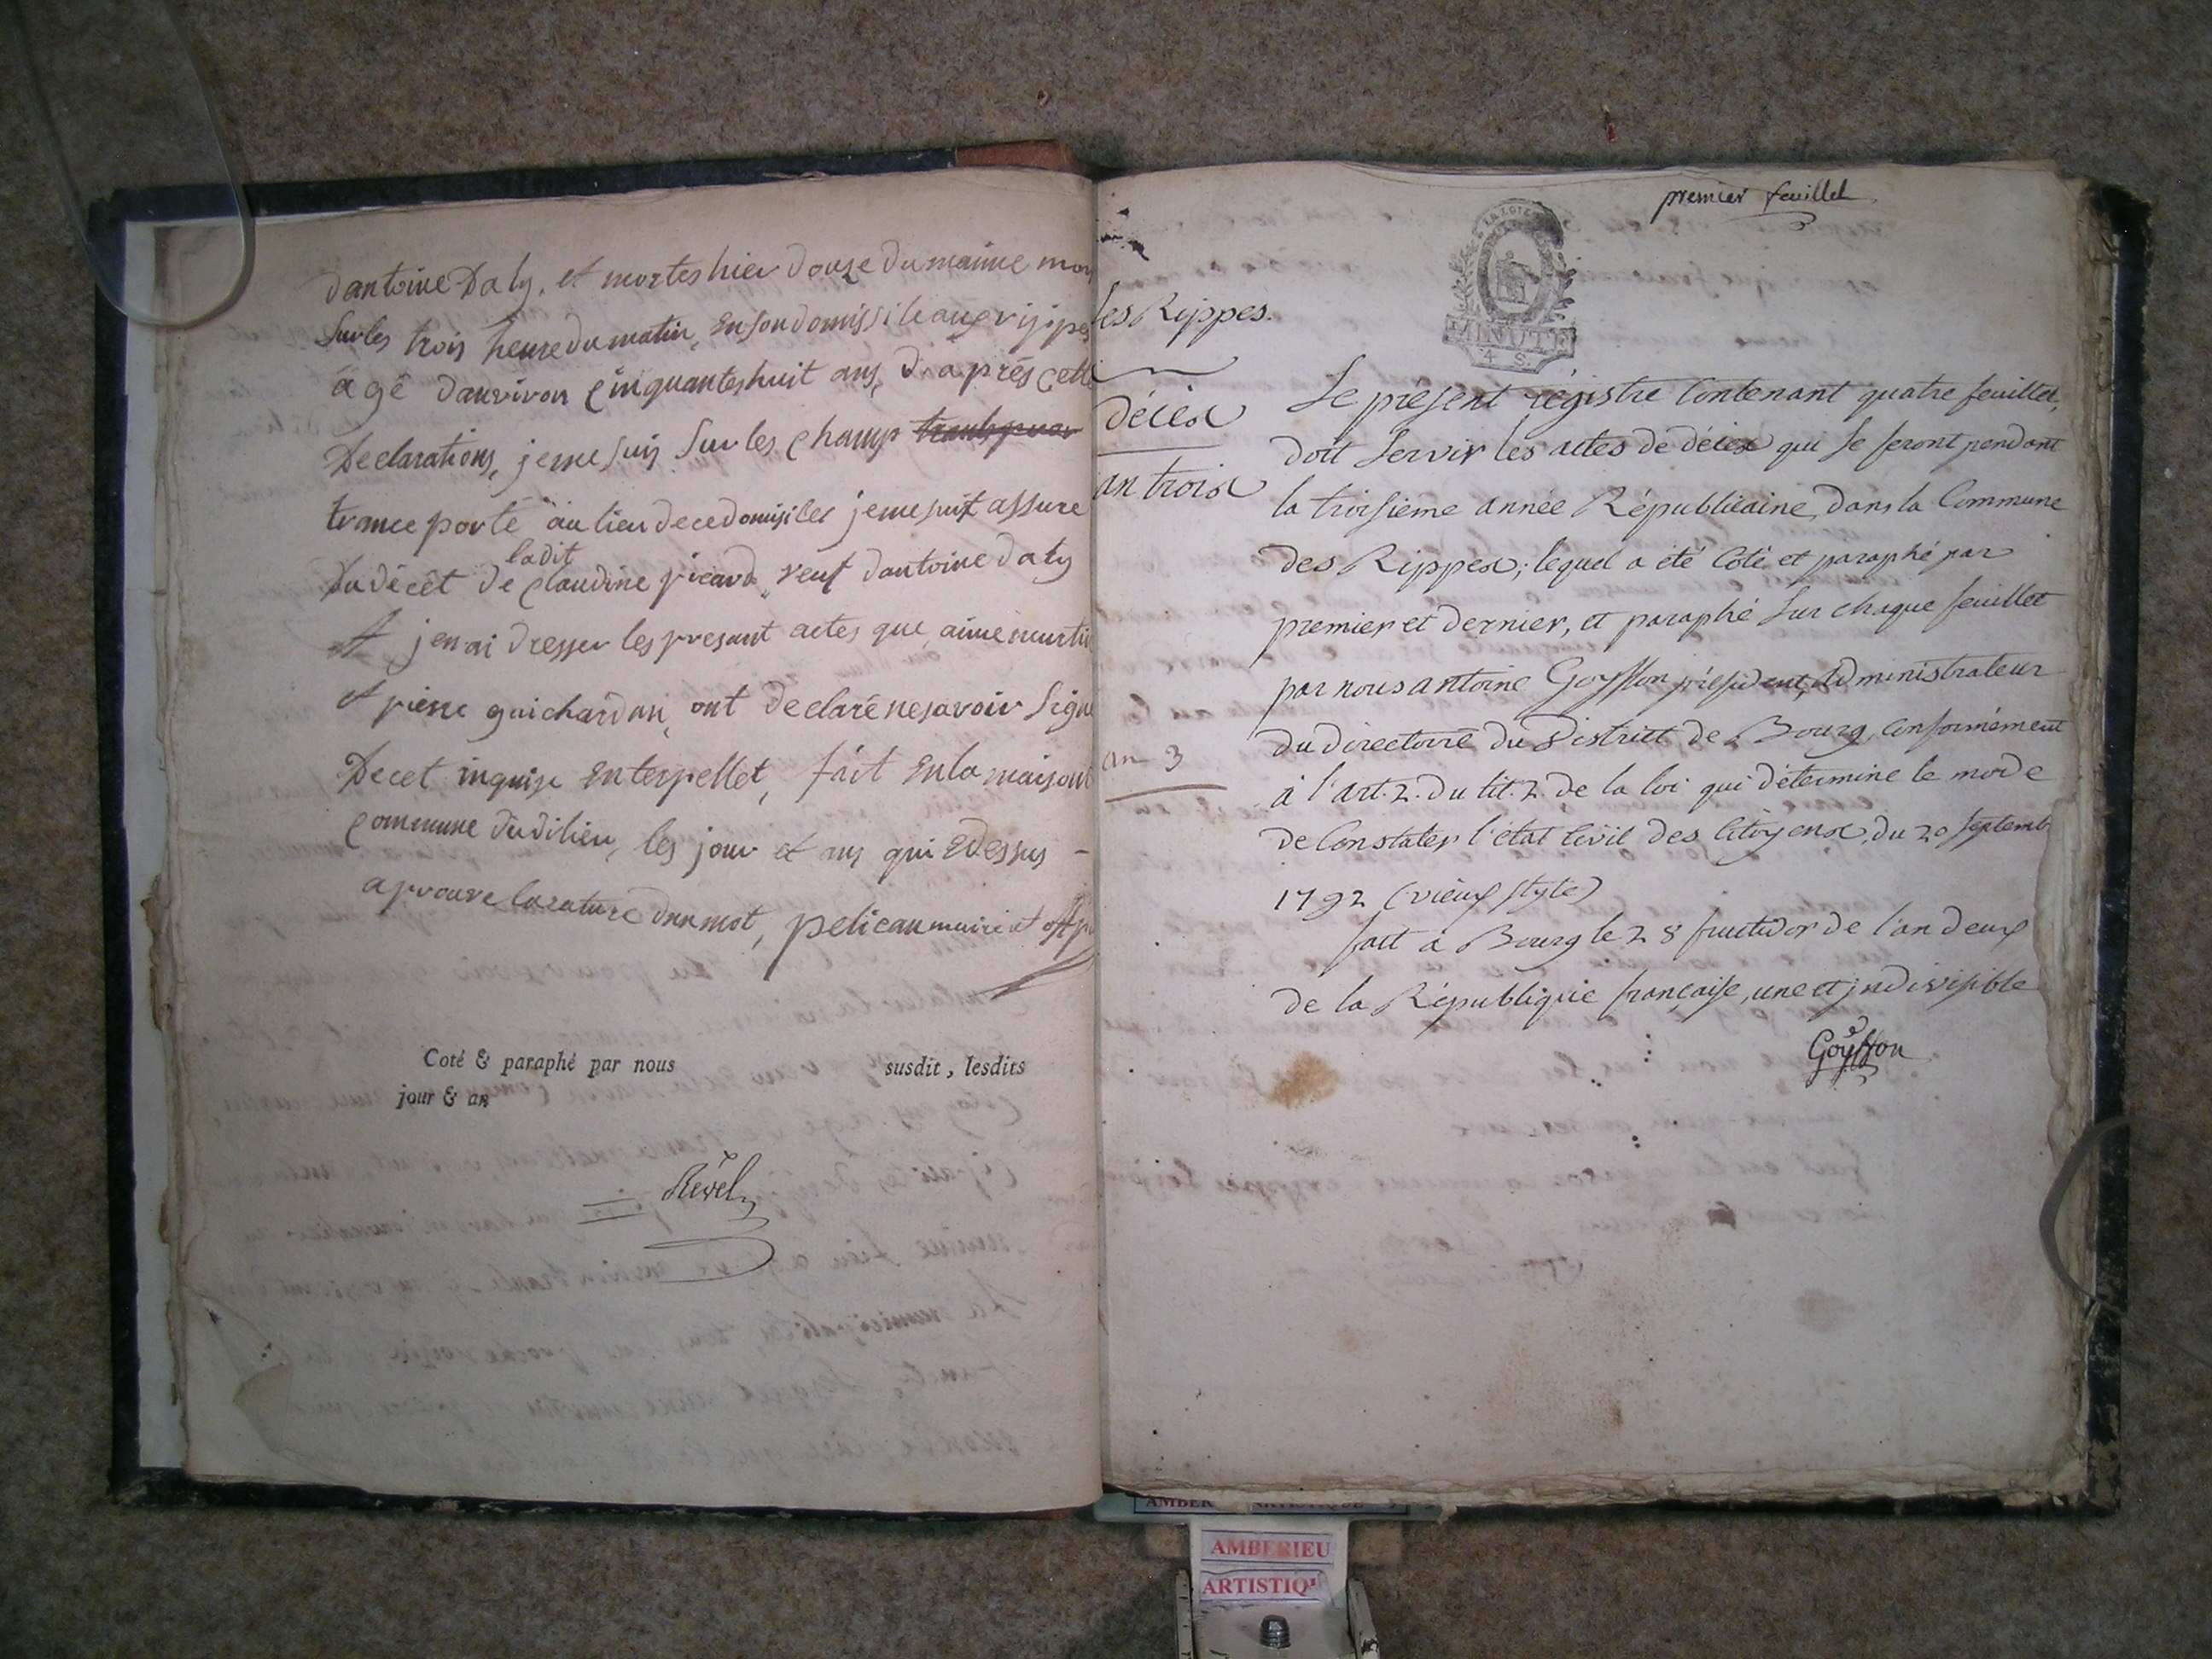 dantoine Daly, et mortes hier douze du maime moy
sur les trois heure du matin, en son domissile aux rippes
agé danviron cinquantes huit ans, d'aprés cette
Declarations, je me suis sur les champ
trance porté au lieu de ce domisiles je me suit assure
du décêt de ladit claudine picard, veuf dantoine daly
et jen ai dresser les presant actes que aimé
et pierre guichardon, ont declaré ne savoir signé
De cet inquise enterpellet, fait en la maison
commune dudilieu, les jour et ans qui edessus -
aprouve la rature dun mot, pelican maire et
Coté & paraphé par nous susdit, lesdits
jour & an
Revel
premier feuillet
MINUTE
4 S.
les Rippes.
décès
an trois
an 3
Le présent régistre Contenant quatre feuillets,
doit servir les actes de décès qui se feront pendant
la troisieme année Républicaine, dans la Commune
des Rippes; lequel a été coté et paraphé par
premier et dernier, et paraphé sur chaque feuillet
par nous antoine Goyffon président, Administrateur
du directoire du District de Bourg, conformément
à l'art. 2. du tit. 2. de la loi qui détermine le mode
de Constater l'état Civil des Citoyens, du 20 septemb
1792 (vieux style)
fait à Bourg le 28 fructidor de l'an deux
de la République française, une et indivisible
Goyffon
AMBERIEU
ARTISTIQ